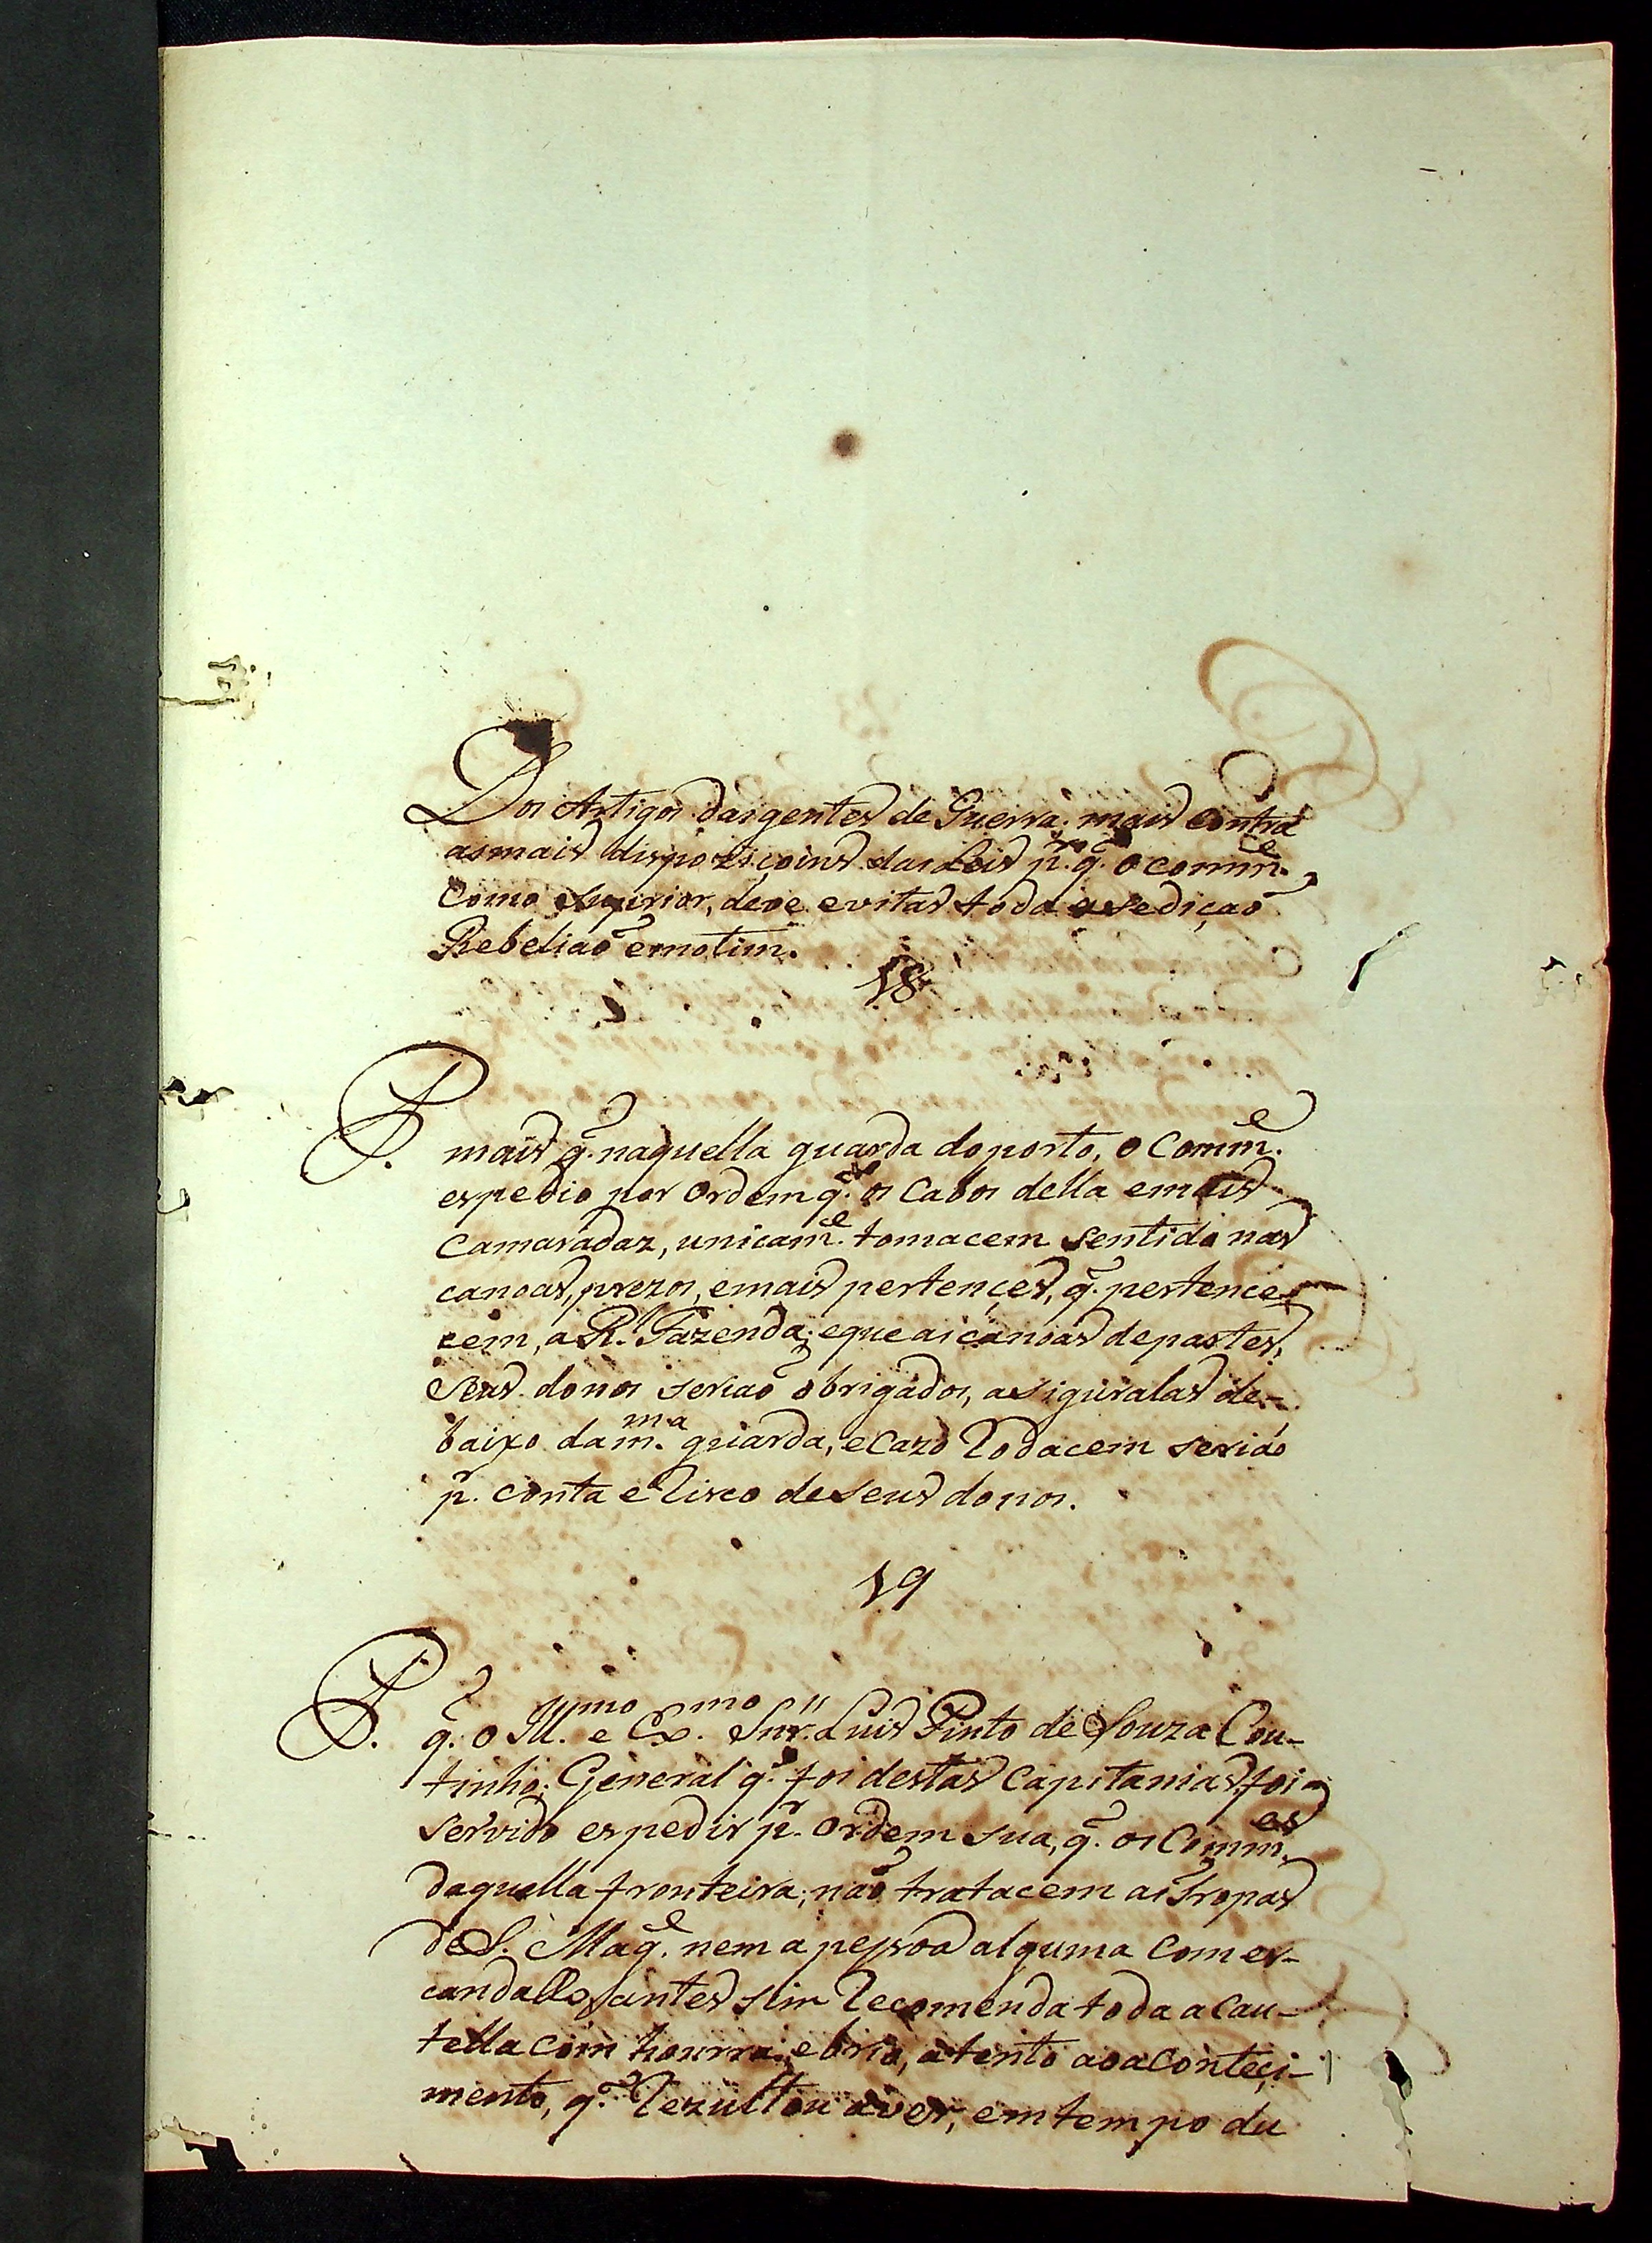 Dos Artigos dasgentes de Guerra; mais contra
asmais dispoziçoins das Leis p.ª q̃. o comm.e
como Superior, deve evitar toda a sedição
Rebelião emotim.
18
P. mais q̃. naquella guarda doporto, o Comm.e
espedio por ordem q̃. os Cabos della emais
Camaradaz, unicam.e tomacem sentido nas
canoas, prezos, emais pertençes, q̃. pertence-
cem, a R.l Fazenda; eque as canoas departes,
Seus donos serião obrigados, asiguralas de-
baixo dam.ma guarda, ecazo Rodacem serião
p.r conta e Risco deseus donos.
19
P. q̃. o Ill.mo e Ex.mo Snr. Luis Pinto de Souza Cou-
tinho; General q̃. foi destas Capitanias, foi
servido espedir p.r ordem sua, q̃. os Comm.es
daquella fronteira; não tratacem as Tropas
de S. Mag.e nem a pessoa alguma Com es-
candallo, antes sim Recomenda toda a Cau-
tella com honrra, ebrio, atento aoaConteçi-
mento, q̃. Rezultou aver, emtempo du